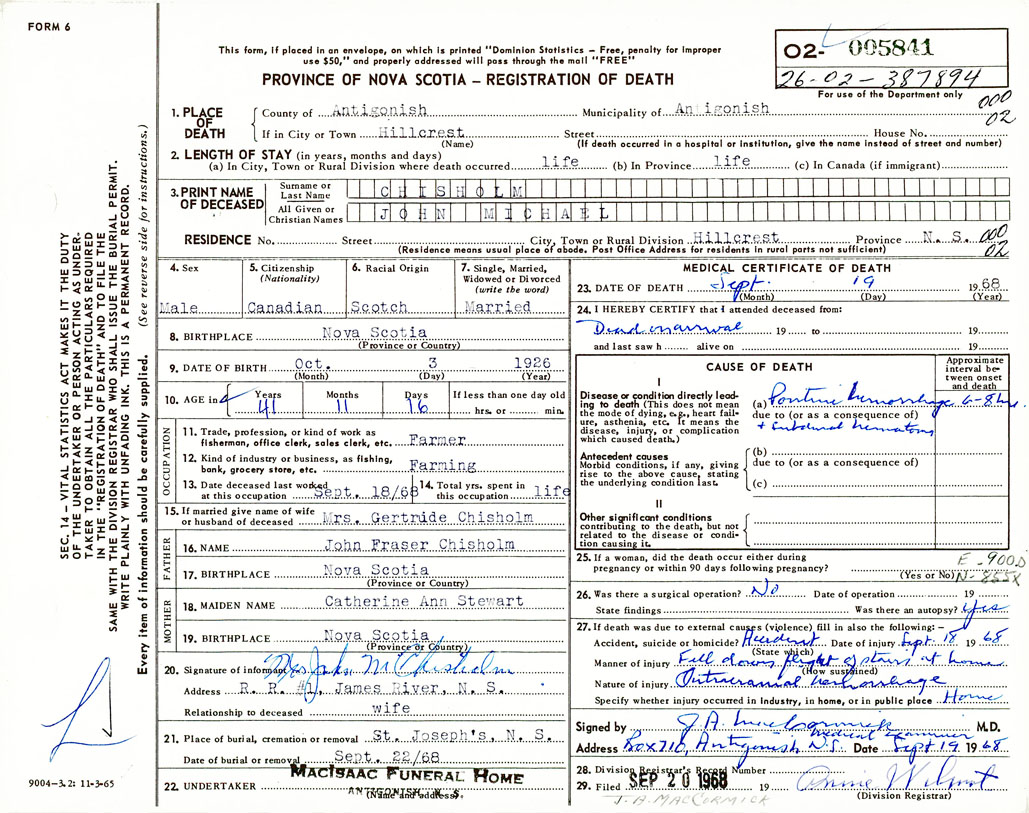 FORM 6
This form, if placed in an envelope, on which is printed "Dominion Statistics – Free, penalty for improper
use $50," and properly addressed will pass through the mail "FREE"
PROVINCE OF NOVA SCOTIA – REGISTRATION OF DEATH
02- 005841
26-02-387894
For use of the Department only
000
02
SEC. 14 – VITAL STATISTICS ACT MAKES IT THE DUTY
OF THE UNDERTAKER OR PERSON ACTING AS UNDER-
TAKER TO OBTAIN ALL THE PARTICULARS REQUIRED
IN THE "REGISTRATION OF DEATH" AND TO FILE THE
SAME WITH THE DIVISION REGISTRAR WHO SHALL ISSUE THE BURIAL PERMIT.
WRITE PLAINLY WITH UNFADING INK. THIS IS A PERMANENT RECORD.
Every item of information should be carefully supplied. (See reverse side for instructions.)
1. PLACE OF DEATH
County of Antigonish Municipality of Antigonish
If in City or Town Hillcrest Street House No.
(Name) (If death occurred in a hospital or institution, give the name instead of street and number)
2. LENGTH OF STAY (in years, months and days)
(a) In City, Town or Rural Division where death occurred life (b) In Province life (c) In Canada (if immigrant)
3. PRINT NAME OF DECEASED
Surname or Last Name CHISHOLM
All Given or Christian Names JOHN MICHAEL
RESIDENCE No. Street City, Town or Rural Division Hillcrest Province N. S. 000
02
(Residence means usual place of abode. Post Office Address for residents in rural parts not sufficient)
4. Sex
Male
5. Citizenship
(Nationality)
Canadian
6. Racial Origin
Scotch
7. Single, Married,
Widowed or Divorced
(write the word)
Married
8. BIRTHPLACE Nova Scotia
(Province or Country)
9. DATE OF BIRTH Oct. 3 1926
(Month) (Day) (Year)
10. AGE in Years Months Days If less than one day old
41 11 16 hrs. or min.
OCCUPATION
11. Trade, profession, or kind of work as
fisherman, office clerk, sales clerk, etc. Farmer
12. Kind of industry or business, as fishing,
bank, grocery store, etc. Farming
13. Date deceased last worked
at this occupation Sept. 18/68
14. Total yrs. spent in
this occupation life
15. If married give name of wife
or husband of deceased Mrs. Gertride Chisholm
FATHER
16. NAME John Fraser Chisholm
17. BIRTHPLACE Nova Scotia
(Province or Country)
MOTHER
18. MAIDEN NAME Catherine Ann Stewart
19. BIRTHPLACE Nova Scotia
(Province or Country)
20. Signature of informant Mrs John M Chisholm
Address R. R. #1, James River, N. S.
Relationship to deceased wife
21. Place of burial, cremation or removal St. Joseph's, N. S.
Date of burial or removal Sept. 22/68
22. UNDERTAKER MACISAAC FUNERAL HOME
ANTIGONISH, N. S.
(Name and address)
9004-3.2: 11-3-65
MEDICAL CERTIFICATE OF DEATH
23. DATE OF DEATH Sept. 19 1968
(Month) (Day) (Year)
24. I HEREBY CERTIFY that I attended deceased from:
Dead on arrival 19 to 19
and last saw h alive on 19
CAUSE OF DEATH
Approximate
interval be-
tween onset
and death
I
Disease or condition directly lead-
ing to death (This does not mean
the mode of dying, e.g., heart fail-
ure, asthenia, etc. It means the
disease, injury, or complication
which caused death.)
(a) Pontine hemorrhage 6-8 hrs.
due to (or as a consequence of)
+ subdural hematoma
Antecedent causes
Morbid conditions, if any, giving
rise to the above cause, stating
the underlying condition last.
(b)
due to (or as a consequence of)
(c)
II
Other significant conditions
contributing to the death, but not
related to the disease or condi-
tion causing it.
25. If a woman, did the death occur either during
pregnancy or within 90 days following pregnancy?
(Yes or No)
E-900.0
N-855X
26. Was there a surgical operation? No Date of operation 19
State findings Was there an autopsy? Yes
27. If death was due to external causes (violence) fill in also the following: –
Accident, suicide or homicide? Accident Date of injury Sept. 18 1968
(State which)
Manner of injury Fell down flight of stairs at home
(How sustained)
Nature of injury Intracranial hemorrhage
Specify whether injury occurred in Industry, in home, or in public place Home
Signed by J.A. MacCormick M.D.
Medical Examiner
Address Box 710, Antigonish N.S. Date Sept 19 1968
28. Division Registrar's Record Number
29. Filed SEP 20 1968 19
(Division Registrar)
J.A. MACCORMICK